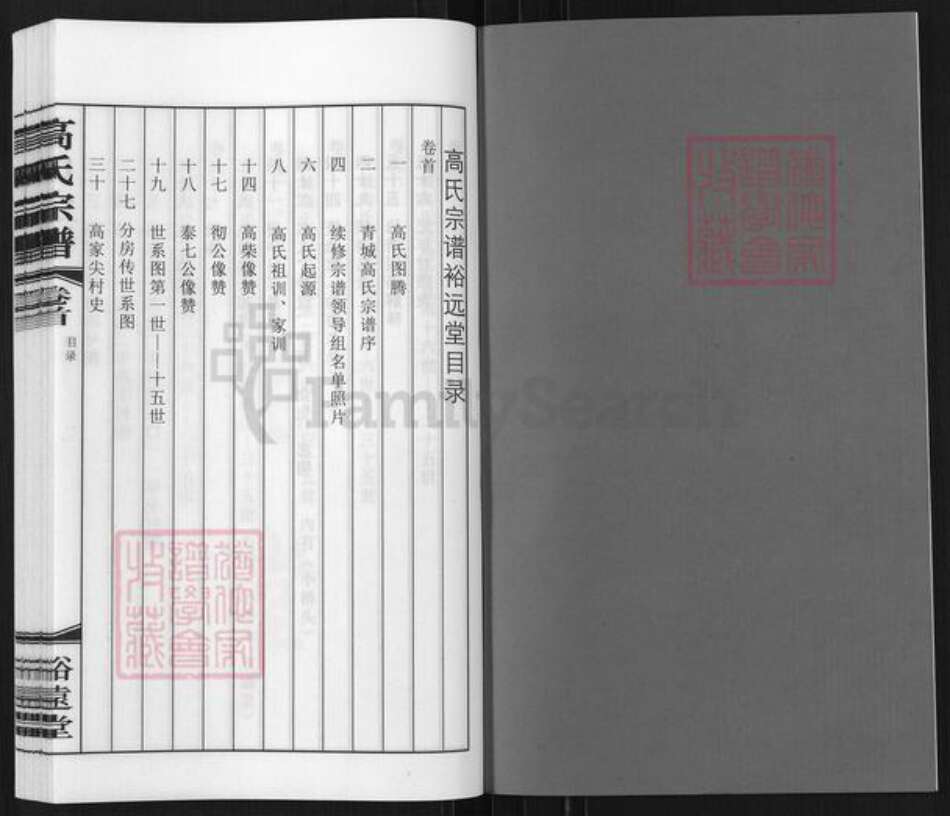 高氏宗谱裕远堂目录
卷首
一 高氏图腾
二 青城高氏宗谱序
四 续修宗谱领导组名单照片
六 高氏起源
八 高氏祖训、家训
十四 高柴像赞
十七 彻公像赞
十八 泰七公像赞
十九 世系图第一世——十五世
二十七 分房传世系图
三十 高家尖村史
高氏宗譜
卷首
目录
裕遠堂
FamilySearch